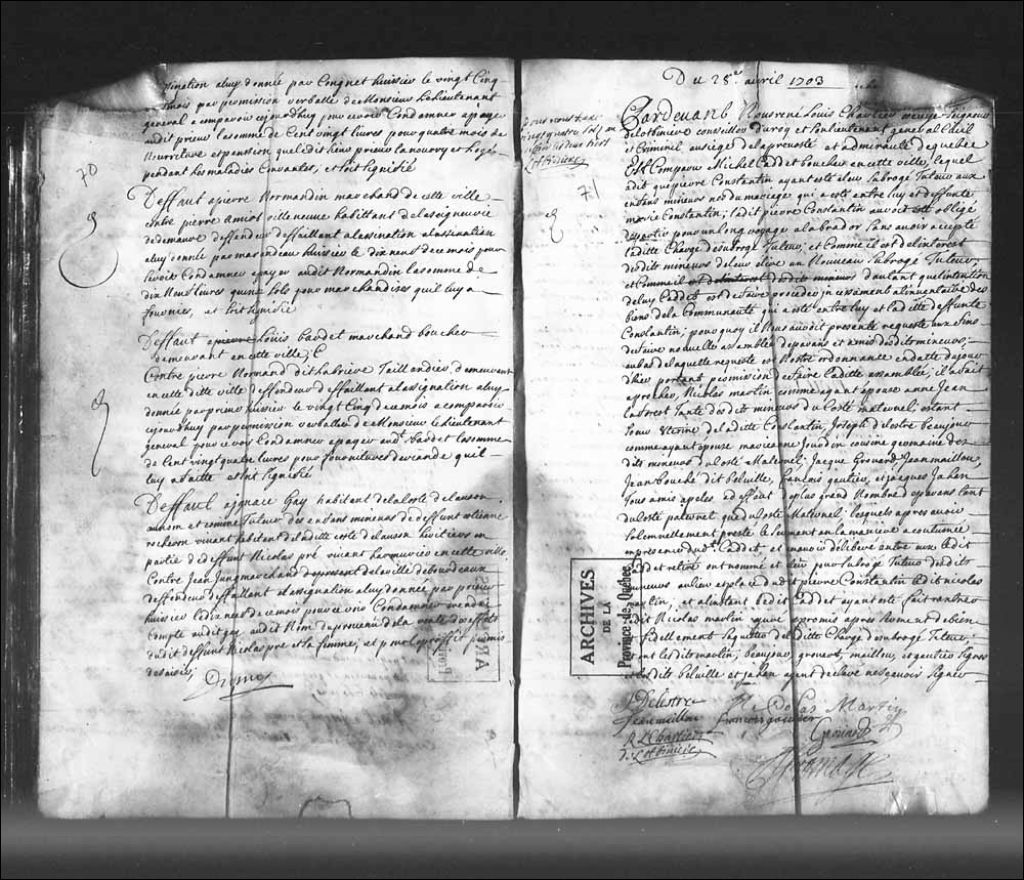 70
assination aluy donnée par Congnet huissier le vingt Cinq
mois par permission verballe de Monsieur Le lieutenant
general a comparoir cejourdhuy pour ce voir Condamner apayer
audit prieur la somme de Cent vingt livres pour quatre mois de
Nourriture et pension quel edit sieur prieur la nourry et Logé
pendant Les maladies Courantes, et soit signiffié
Deffaut apierre Normandin marchand de cette ville
contre pierre Amiot villeneuve habittans de la seigneurie
de demaure deffendeur deffaillant a lassination alassination
aluy donnée par marandeau huissier le dix neuf de ce mois pour
se voir Condamner apayer audit Normandin la somme de
dix Neuf livres quinze sols pour marchandises quil luy a
fournies, et soit signiffié
Deffaut apierre Louis baudet marchand boucher
demeurant en cette ville, C
Contre pierre Normand dit Labriere Taillandier, demeurant
en cette ditte ville deffendeur deffaillant alassignation aluy
donnée par prieur huissier le vingt Cinq de ce mois a comparoir
cejourdhuy par permission verballe de Monsieur le lieutenant
general pour ce voir Condamner apayer audt. baudet la somme
de Cent vingt quatre livres pour fournitures de viande quil
luy a faitte et soit signiffié
Deffaut a ignace Gay habitant de la Coste de lauson
aunom et comme Tuteur des enfans mineurs de deffunt estienne
rocheron vivant habitant de laditte coste de lauson heritiers en
partie de deffunt Nicolas pré vivant harmurier en cette ville,
Contre Jean Jung marchand depresent de la ville de bourdeaux
deffendeur deffaillant alassignation aluy donnée par prieur
huissier le dix neuf de ce mois pour ce voir Condamner rendre
Compte audit gay audit Nom du provenu de la vente des effets
dudit deffunt Nicolas pré et sa femme, et pour le proffit permis
de saisir,
Du 28e. avril 1703
71
Pardevant Nous rené Louis Chartier escuyer Seigneur
de Lotbiniere conseiller du roy et son lieutenant general Civil
et Criminel au siege de la prevosté et admirauté de quebec
Est Comparu Michel Caddet boucher en cette ville, lequel
a dit que pierre Constantin ayant esté eleu subrogé Tuteur aux
enfans mineurs nés du mariage qui a esté entre luy et deffunte
marie Constantin; ledit pierre Constantin auroit esté obligé
de partir pour un long voyage alabrador sans avoir accepté
laditte Charge de subrogé Tuteur, et Comme il est de linterest
desdits mineurs de leur elire un Nouveau subrogé Tuteur,
et Comme il est de linterest desdits mineurs d'autant que lintention
de luy Caddet est de faire proceder incessament a linventaire des
biens de la Communauté qui a esté entre luy et laditte deffunte
Constantin, pourquoy il Nous auroit presenté requeste aux fins
de faire nouvelle assemblée de parans et amis desdits mineurs,
au bas de laquelle requeste est Nostre ordonnance en datte du jour
d'hier portant permission de faire laditte assemblée, il a fait
aprocher, Nicolas martin comme ayant epousé anne Jean
laforest Tante desdits mineurs du Costé maternel estant
soeur uterine de laditte Constantin, Joseph delestre beaujour
comme ayant epousé marianne Jourdin cousine germaine des
dits mineurs du Costé Maternel, Jacque Grouard, Jean maillou,
Jean bouché dit belville, francois gautier, et jacques Jahan
Tous amis apelés adeffaut de plus grand Nombre de parans tant
du Costé paternel que du Costé Maternel; lesquels apres avoir
solemnellement presté le serment en la maniere acoutumée
en presence dudt. Caddet, et avoir deliberé entre eux ledit
Caddet retiré ont nommé et eleu pour subrogé Tuteur desdits
mineurs au lieu et place dudt. pierre Constantin ledit nicolas
martin, et alinstant ledit Caddet ayant esté fait rentrer
ledit Nicolas martin apromis apres serment de bien
et fidellement saquitter de laditte Charge de subrogé Tuteur,
et ont lesdits martin, beaujour, grouard, maillou, et gautier signé
et lesdits belville et jahan ayant declaré ne scavoir signer
J Delestre
Nicolas Martin
Jean maillou
francois gautier
Grouard
R L Chartier
De Lotbiniere
ARCHIVES
DE LA
Province de Québec